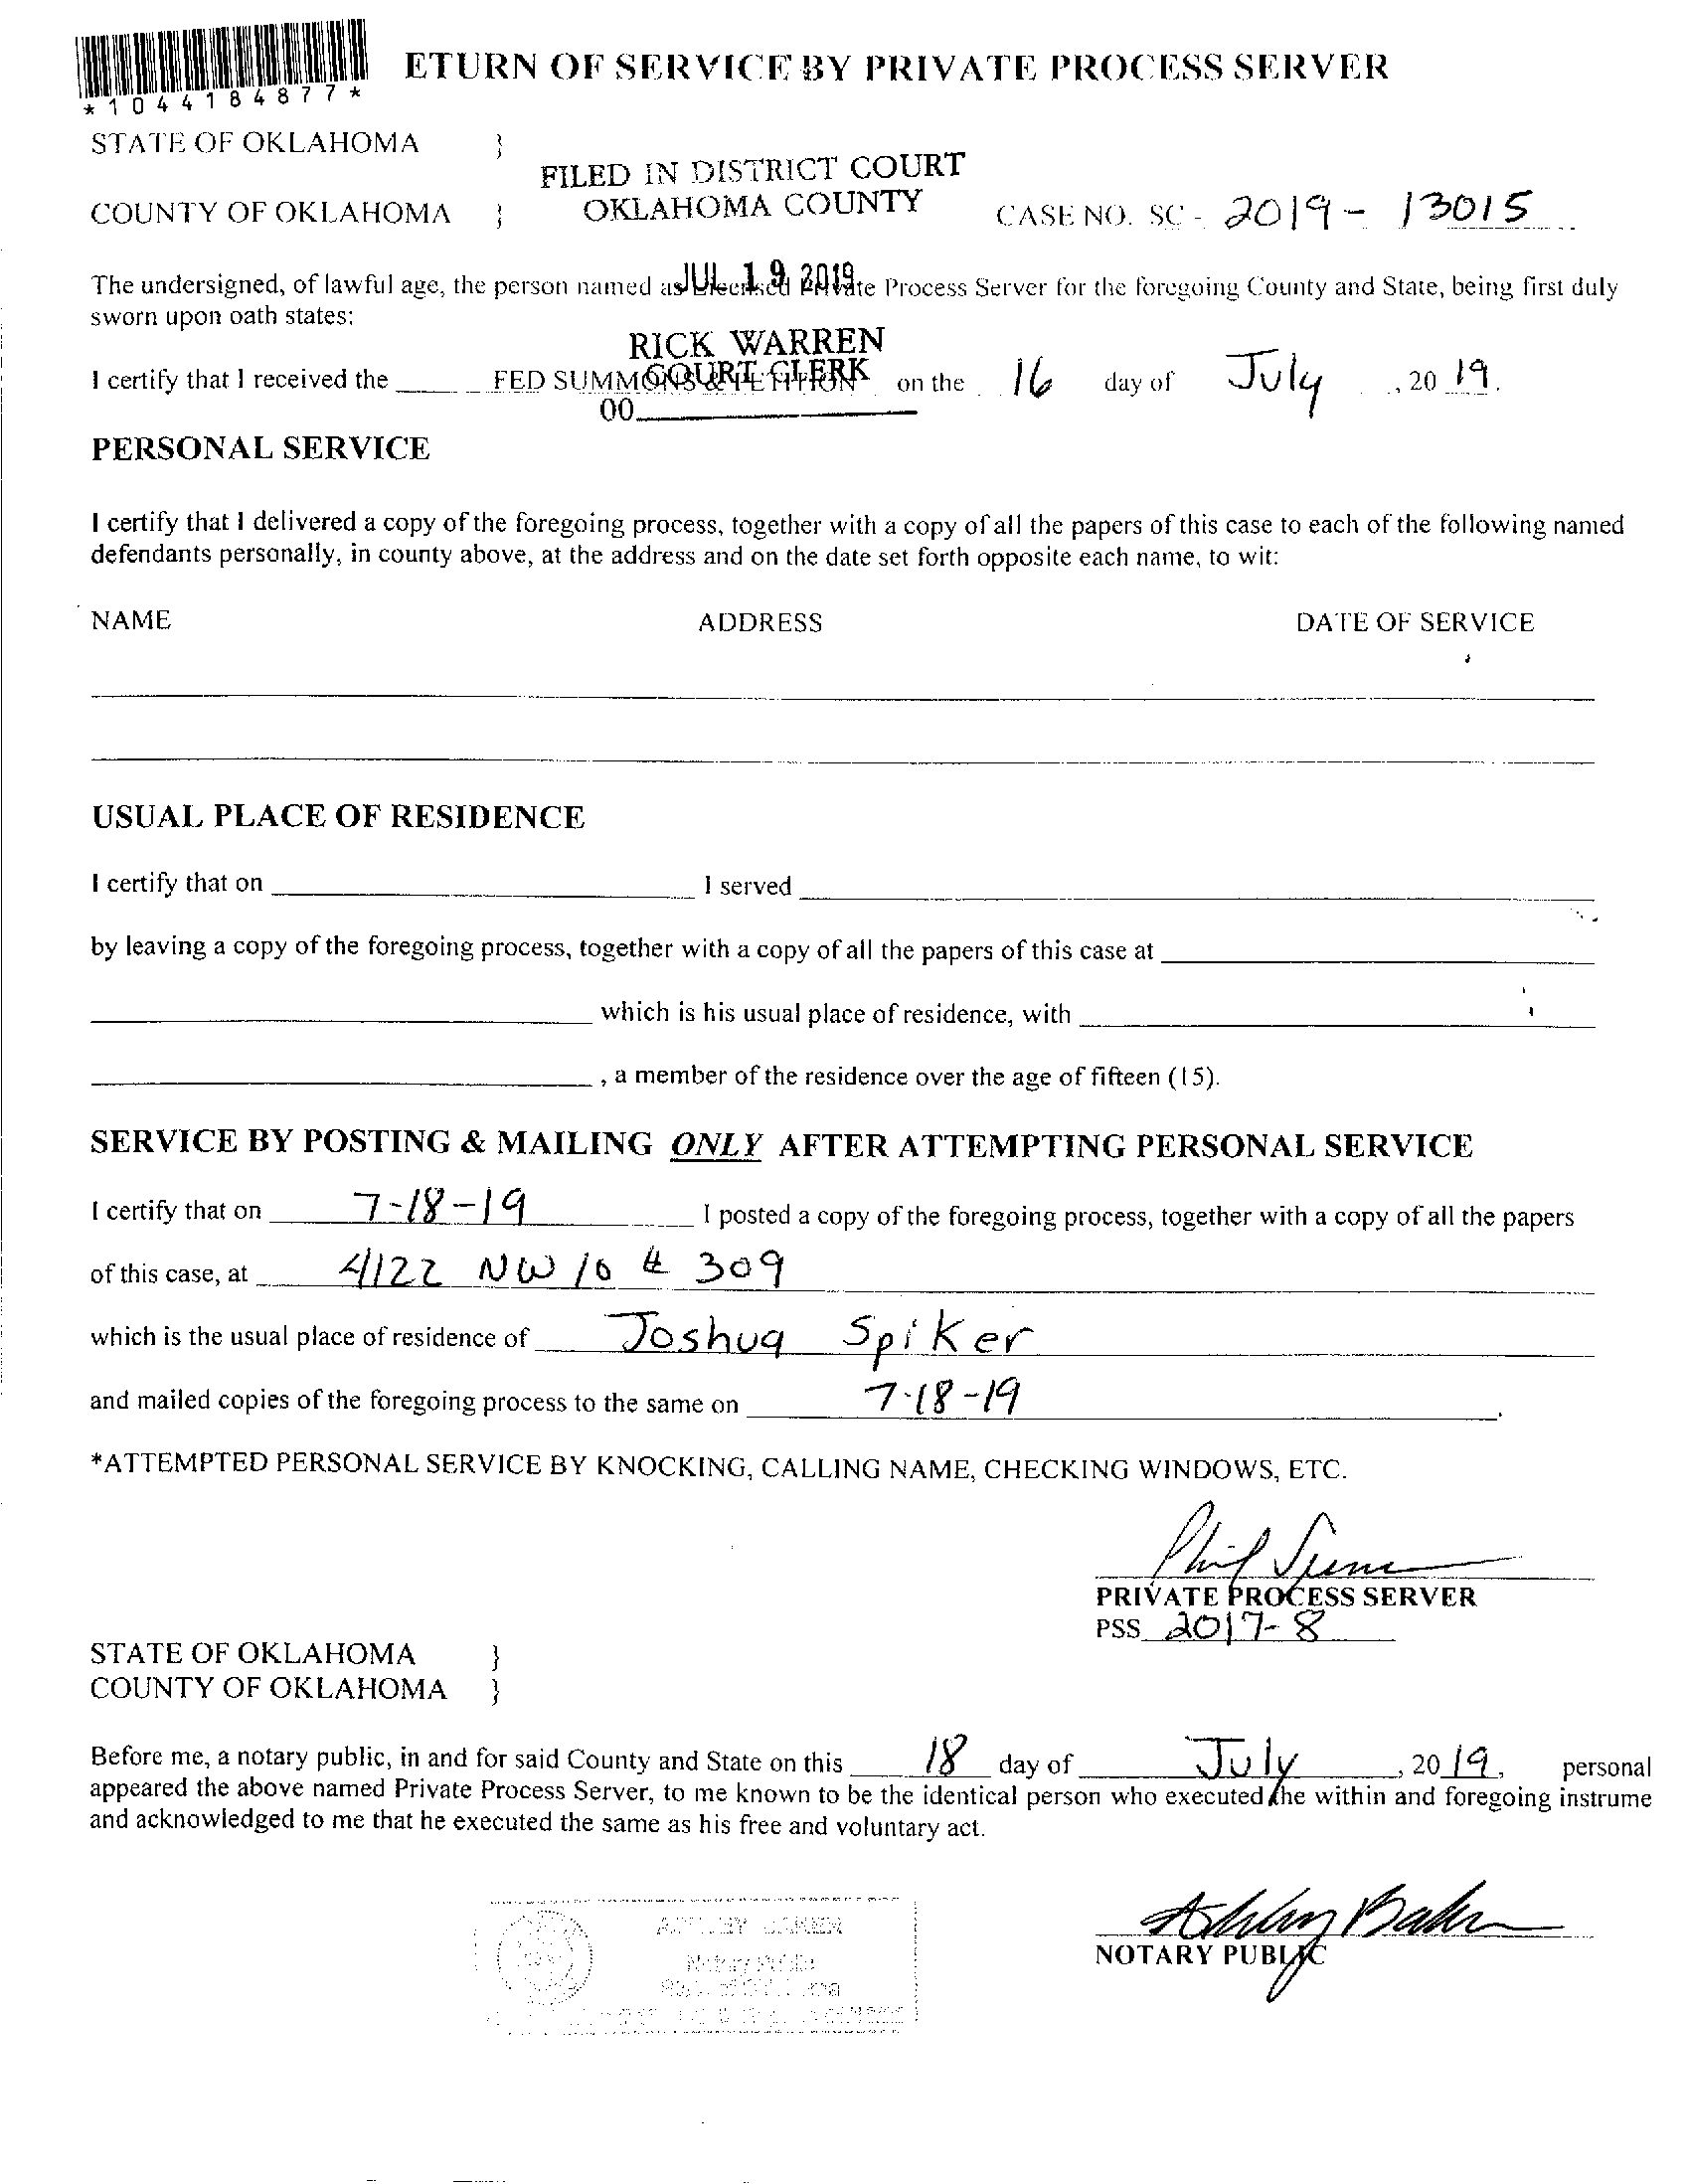 *1044184877*
ETURN OF SERVICE BY PRIVATE PROCESS SERVER
STATE OF OKLAHOMA }
FILED IN DISTRICT COURT
OKLAHOMA COUNTY
COUNTY OF OKLAHOMA } CASE NO. SC - 2019 - 13015
JUL 19 2019
The undersigned, of lawful age, the person named as Licensed Private Process Server for the foregoing County and State, being first duly
sworn upon oath states:
RICK WARREN
COURT CLERK
I certify that I received the FED SUMMONS & PETITION on the 16 day of July , 20 19.
00
PERSONAL SERVICE
I certify that I delivered a copy of the foregoing process, together with a copy of all the papers of this case to each of the following named
defendants personally, in county above, at the address and on the date set forth opposite each name, to wit:
NAME ADDRESS DATE OF SERVICE
USUAL PLACE OF RESIDENCE
I certify that on I served
by leaving a copy of the foregoing process, together with a copy of all the papers of this case at
which is his usual place of residence, with
, a member of the residence over the age of fifteen (15).
SERVICE BY POSTING & MAILING ONLY AFTER ATTEMPTING PERSONAL SERVICE
I certify that on 7-18-19 I posted a copy of the foregoing process, together with a copy of all the papers
of this case, at 4122 NW 10 # 309
which is the usual place of residence of Joshua Spiker
and mailed copies of the foregoing process to the same on 7-18-19.
*ATTEMPTED PERSONAL SERVICE BY KNOCKING, CALLING NAME, CHECKING WINDOWS, ETC.
Phil
PRIVATE PROCESS SERVER
PSS 2017-8
STATE OF OKLAHOMA }
COUNTY OF OKLAHOMA }
Before me, a notary public, in and for said County and State on this 18 day of July , 20 19, personal
appeared the above named Private Process Server, to me known to be the identical person who executed the within and foregoing instrume
and acknowledged to me that he executed the same as his free and voluntary act.
Notary Public
Ashley Baker
NOTARY PUBLIC